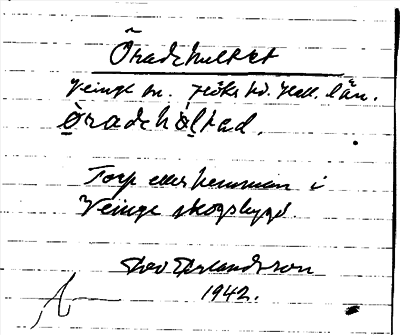 Öradehultet
Veinge sn. Höks hd. Hall. län.
òradehàltad.
Torp eller hemman i
Veinge skogsbygd.
Erlandsson
1942.